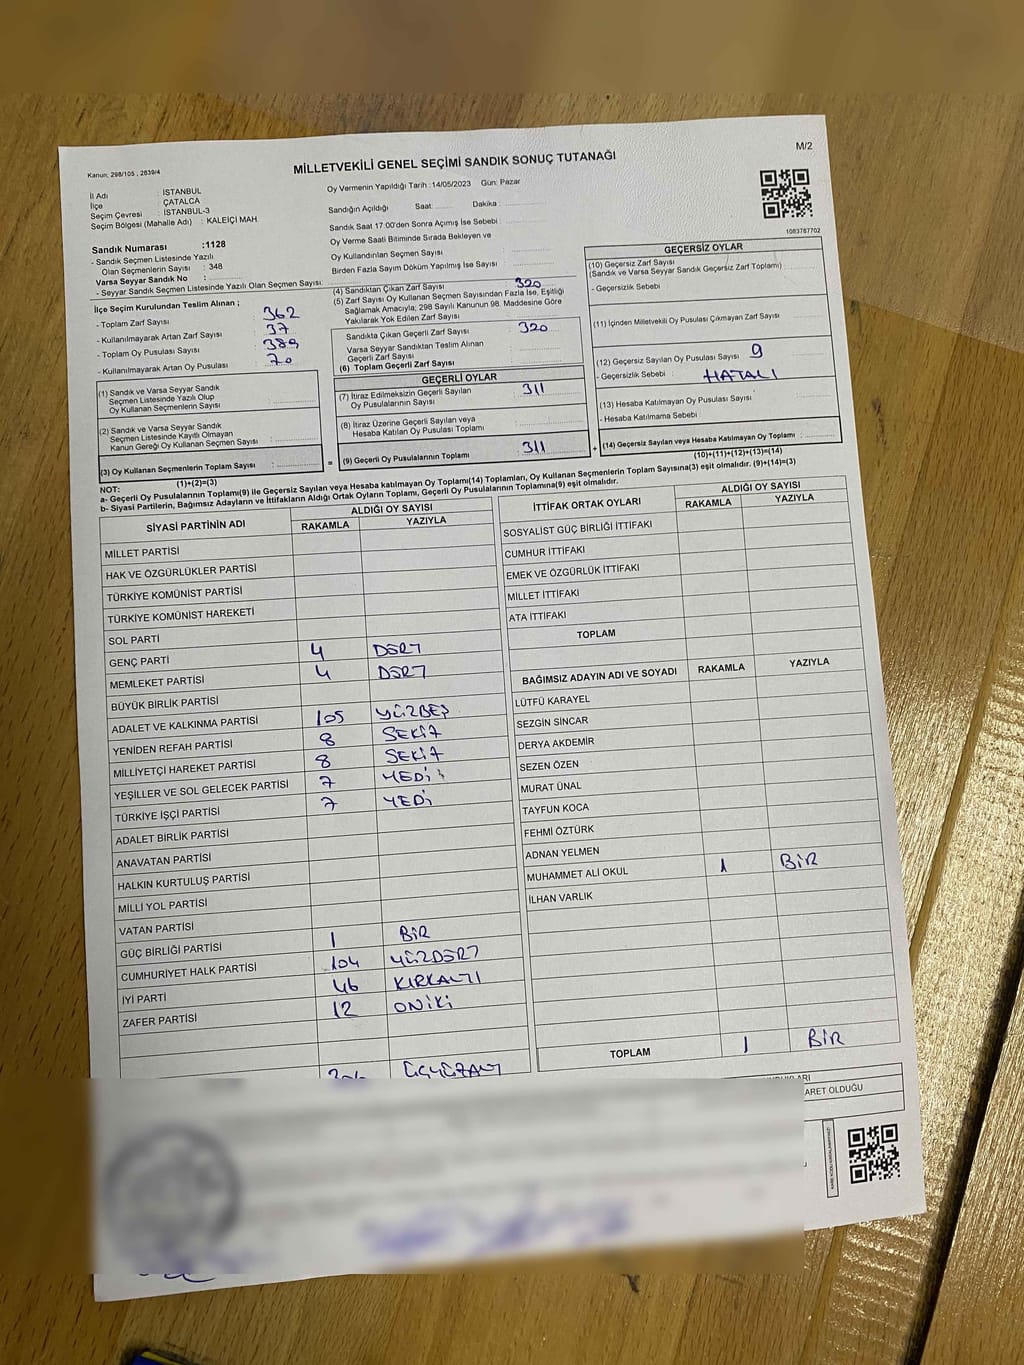 M/2
Kanun; 298/105 , 2839/4
MİLLETVEKİLİ GENEL SEÇİMİ SANDIK SONUÇ TUTANAĞI
İl Adı : İSTANBUL
İlçe : ÇATALCA
Seçim Çevresi : İSTANBUL-3
Seçim Bölgesi (Mahalle Adı) : KALEİÇİ MAH.
Sandık Numarası :1128
- Sandık Seçmen Listesinde Yazılı
Olan Seçmenlerin Sayısı : 348
Varsa Seyyar Sandık No :
- Seyyar Sandık Seçmen Listesinde Yazılı Olan Seçmen Sayısı:
Oy Vermenin Yapıldığı Tarih :14/05/2023 Gün: Pazar
Sandığın Açıldığı Saat: Dakika :
Sandık Saat 17:00'den Sonra Açımış İse Sebebi :
Oy Verme Saati Bitiminde Sırada Bekleyen ve
Oy Kullandırılan Seçmen Sayısı :
Birden Fazla Sayım Döküm Yapılmış İse Sayısı :
1083767702
İlçe Seçim Kurulundan Teslim Alınan ;
- Toplam Zarf Sayısı : 362
- Kullanılmayarak Artan Zarf Sayısı : 37
- Toplam Oy Pusulası Sayısı : 389
- Kullanılmayarak Artan Oy Pusulası : 70
(1) Sandık ve Varsa Seyyar Sandık
Seçmen Listesinde Yazılı Olup
Oy Kullanan Seçmenlerin Sayısı :
(2) Sandık ve Varsa Seyyar Sandık
Seçmen Listesinde Kayıtlı Olmayan
Kanun Gereği Oy Kullanan Seçmen Sayısı :
(3) Oy Kullanan Seçmenlerin Toplam Sayısı :
(1)+(2)=(3)
(4) Sandıktan Çıkan Zarf Sayısı : 320
(5) Zarf Sayısı Oy Kullanan Seçmen Sayısından Fazla İse, Eşitliği
Sağlamak Amacıyla; 298 Sayılı Kanunun 98. Maddesine Göre
Yakılarak Yok Edilen Zarf Sayısı :
Sandıkta Çıkan Geçerli Zarf Sayısı : 320
Varsa Seyyar Sandıktan Teslim Alınan
Geçerli Zarf Sayısı :
(6) Toplam Geçerli Zarf Sayısı :
GEÇERLİ OYLAR
(7) İtiraz Edilmeksizin Geçerli Sayılan
Oy Pusulalarının Sayısı : 311
(8) İtiraz Üzerine Geçerli Sayılan veya
Hesaba Katılan Oy Pusulası Toplamı :
= (9) Geçerli Oy Pusulalarının Toplamı : 311
GEÇERSİZ OYLAR
(10) Geçersiz Zarf Sayısı
(Sandık ve Varsa Seyyar Sandık Geçersiz Zarf Toplamı) :
- Geçersizlik Sebebi :
(11) İçinden Milletvekili Oy Pusulası Çıkmayan Zarf Sayısı :
(12) Geçersiz Sayılan Oy Pusulası Sayısı : 9
- Geçersizlik Sebebi : HATALI
(13) Hesaba Katılmayan Oy Pusulası Sayısı :
- Hesaba Katılmama Sebebi :
+ (14) Geçersiz Sayılan veya Hesaba Katılmayan Oy Toplamı :
(10)+(11)+(12)+(13)=(14)
NOT:
a- Geçerli Oy Pusulalarının Toplamı(9) ile Geçersiz Sayılan veya Hesaba katılmayan Oy Toplamı(14) Toplamları, Oy Kullanan Seçmenlerin Toplam Sayısına(3) eşit olmalıdır. (9)+(14)=(3)
b- Siyasi Partilerin, Bağımsız Adayların ve İttifakların Aldığı Ortak Oyların Toplamı, Geçerli Oy Pusulalarının Toplamına(9) eşit olmalıdır.
SİYASİ PARTİNİN ADI ALDIĞI OY SAYISI
RAKAMLA YAZIYLA
MİLLET PARTİSİ
HAK VE ÖZGÜRLÜKLER PARTİSİ
TÜRKİYE KOMÜNİST PARTİSİ
TÜRKİYE KOMÜNİST HAREKETİ
SOL PARTİ
GENÇ PARTİ 4 DÖRT
MEMLEKET PARTİSİ 4 DÖRT
BÜYÜK BİRLİK PARTİSİ
ADALET VE KALKINMA PARTİSİ 105 YÜZBEŞ
YENİDEN REFAH PARTİSİ 8 SEKİZ
MİLLİYETÇİ HAREKET PARTİSİ 8 SEKİZ
YEŞİLLER VE SOL GELECEK PARTİSİ 7 YEDİ
TÜRKİYE İŞÇİ PARTİSİ 7 YEDİ
ADALET BİRLİK PARTİSİ
ANAVATAN PARTİSİ
HALKIN KURTULUŞ PARTİSİ
MİLLİ YOL PARTİSİ
VATAN PARTİSİ
GÜÇ BİRLİĞİ PARTİSİ 1 BİR
CUMHURİYET HALK PARTİSİ 104 YÜZDÖRT
İYİ PARTİ 46 KIRKALTI
ZAFER PARTİSİ 12 ONİKİ
ÜÇYÜZALTI
İTTİFAK ORTAK OYLARI ALDIĞI OY SAYISI
RAKAMLA YAZIYLA
SOSYALİST GÜÇ BİRLİĞİ İTTİFAKI
CUMHUR İTTİFAKI
EMEK VE ÖZGÜRLÜK İTTİFAKI
MİLLET İTTİFAKI
ATA İTTİFAKI
TOPLAM
BAĞIMSIZ ADAYIN ADI VE SOYADI RAKAMLA YAZIYLA
LÜTFÜ KARAYEL
SEZGİN SİNCAR
DERYA AKDEMİR
SEZEN ÖZEN
MURAT ÜNAL
TAYFUN KOCA
FEHMİ ÖZTÜRK
ADNAN YELMEN
MUHAMMET ALİ OKUL 1 BİR
İLHAN VARLIK
TOPLAM 1 BİR
ARET OLDUĞU